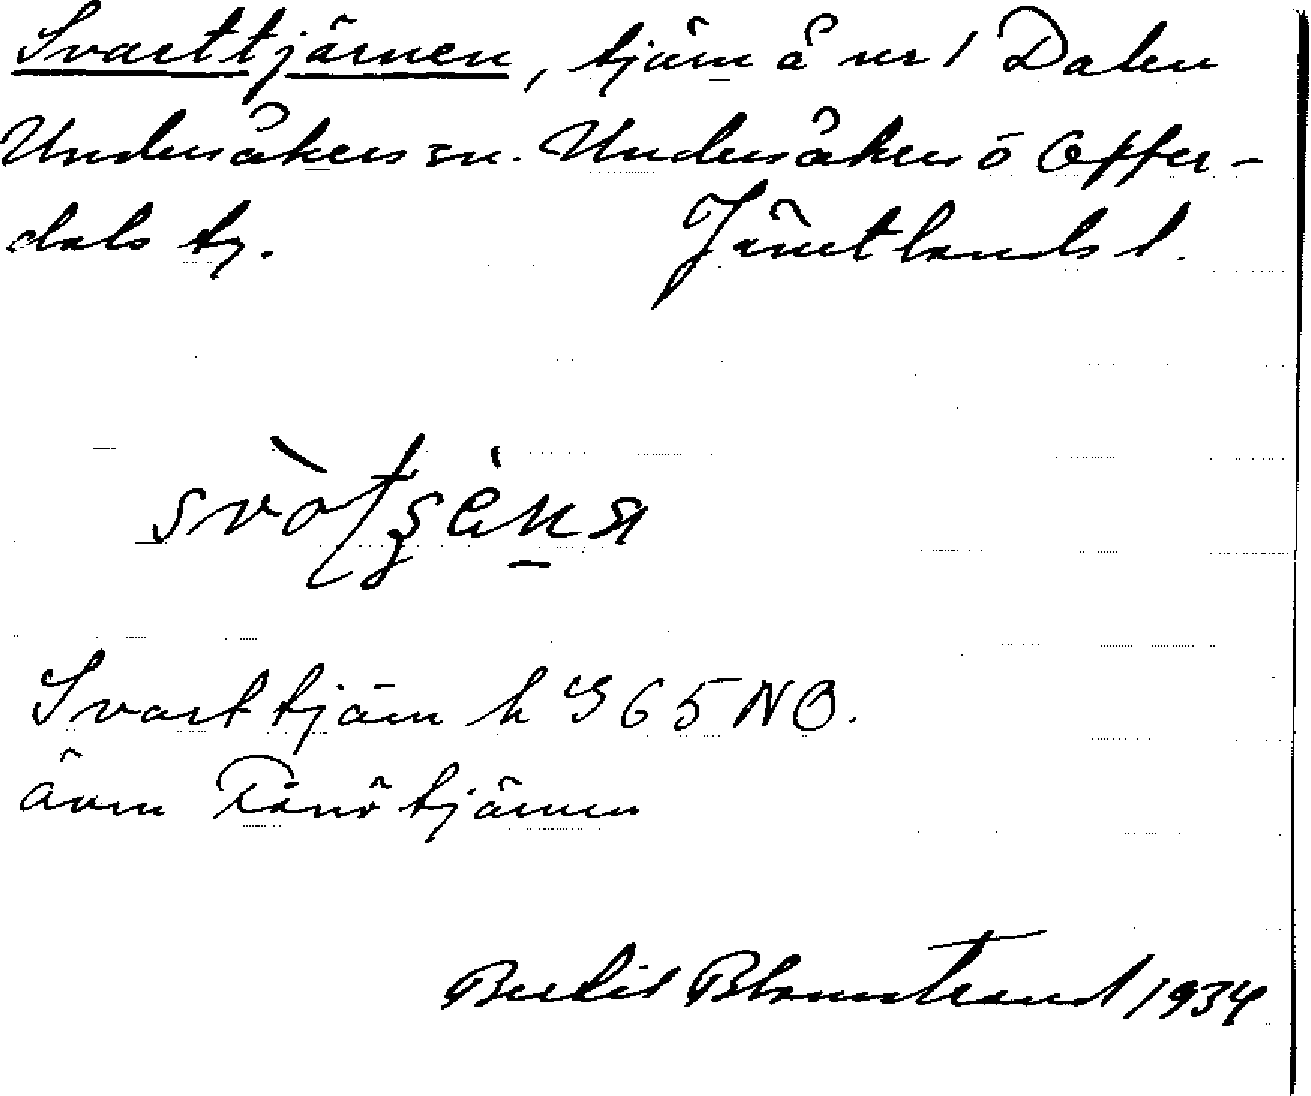 Svarttjärnen, tjärn å nr 1 Dalen
Undersåkers sn. Undersåkers o Offer-
dals tg. Jämtlands l.
Svarttjärn h S 65 NO.
även tjärnen
Bertil Blomstrand 1934